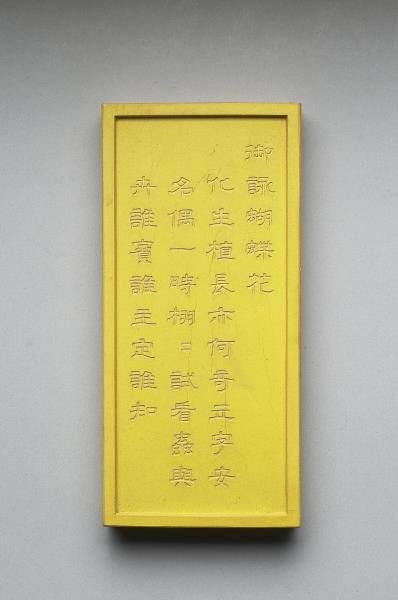 御詠蝴蝶花
化生植長亦何奇立字安
名偶一時栩〻試看蟲與
卉誰賓誰主定誰知